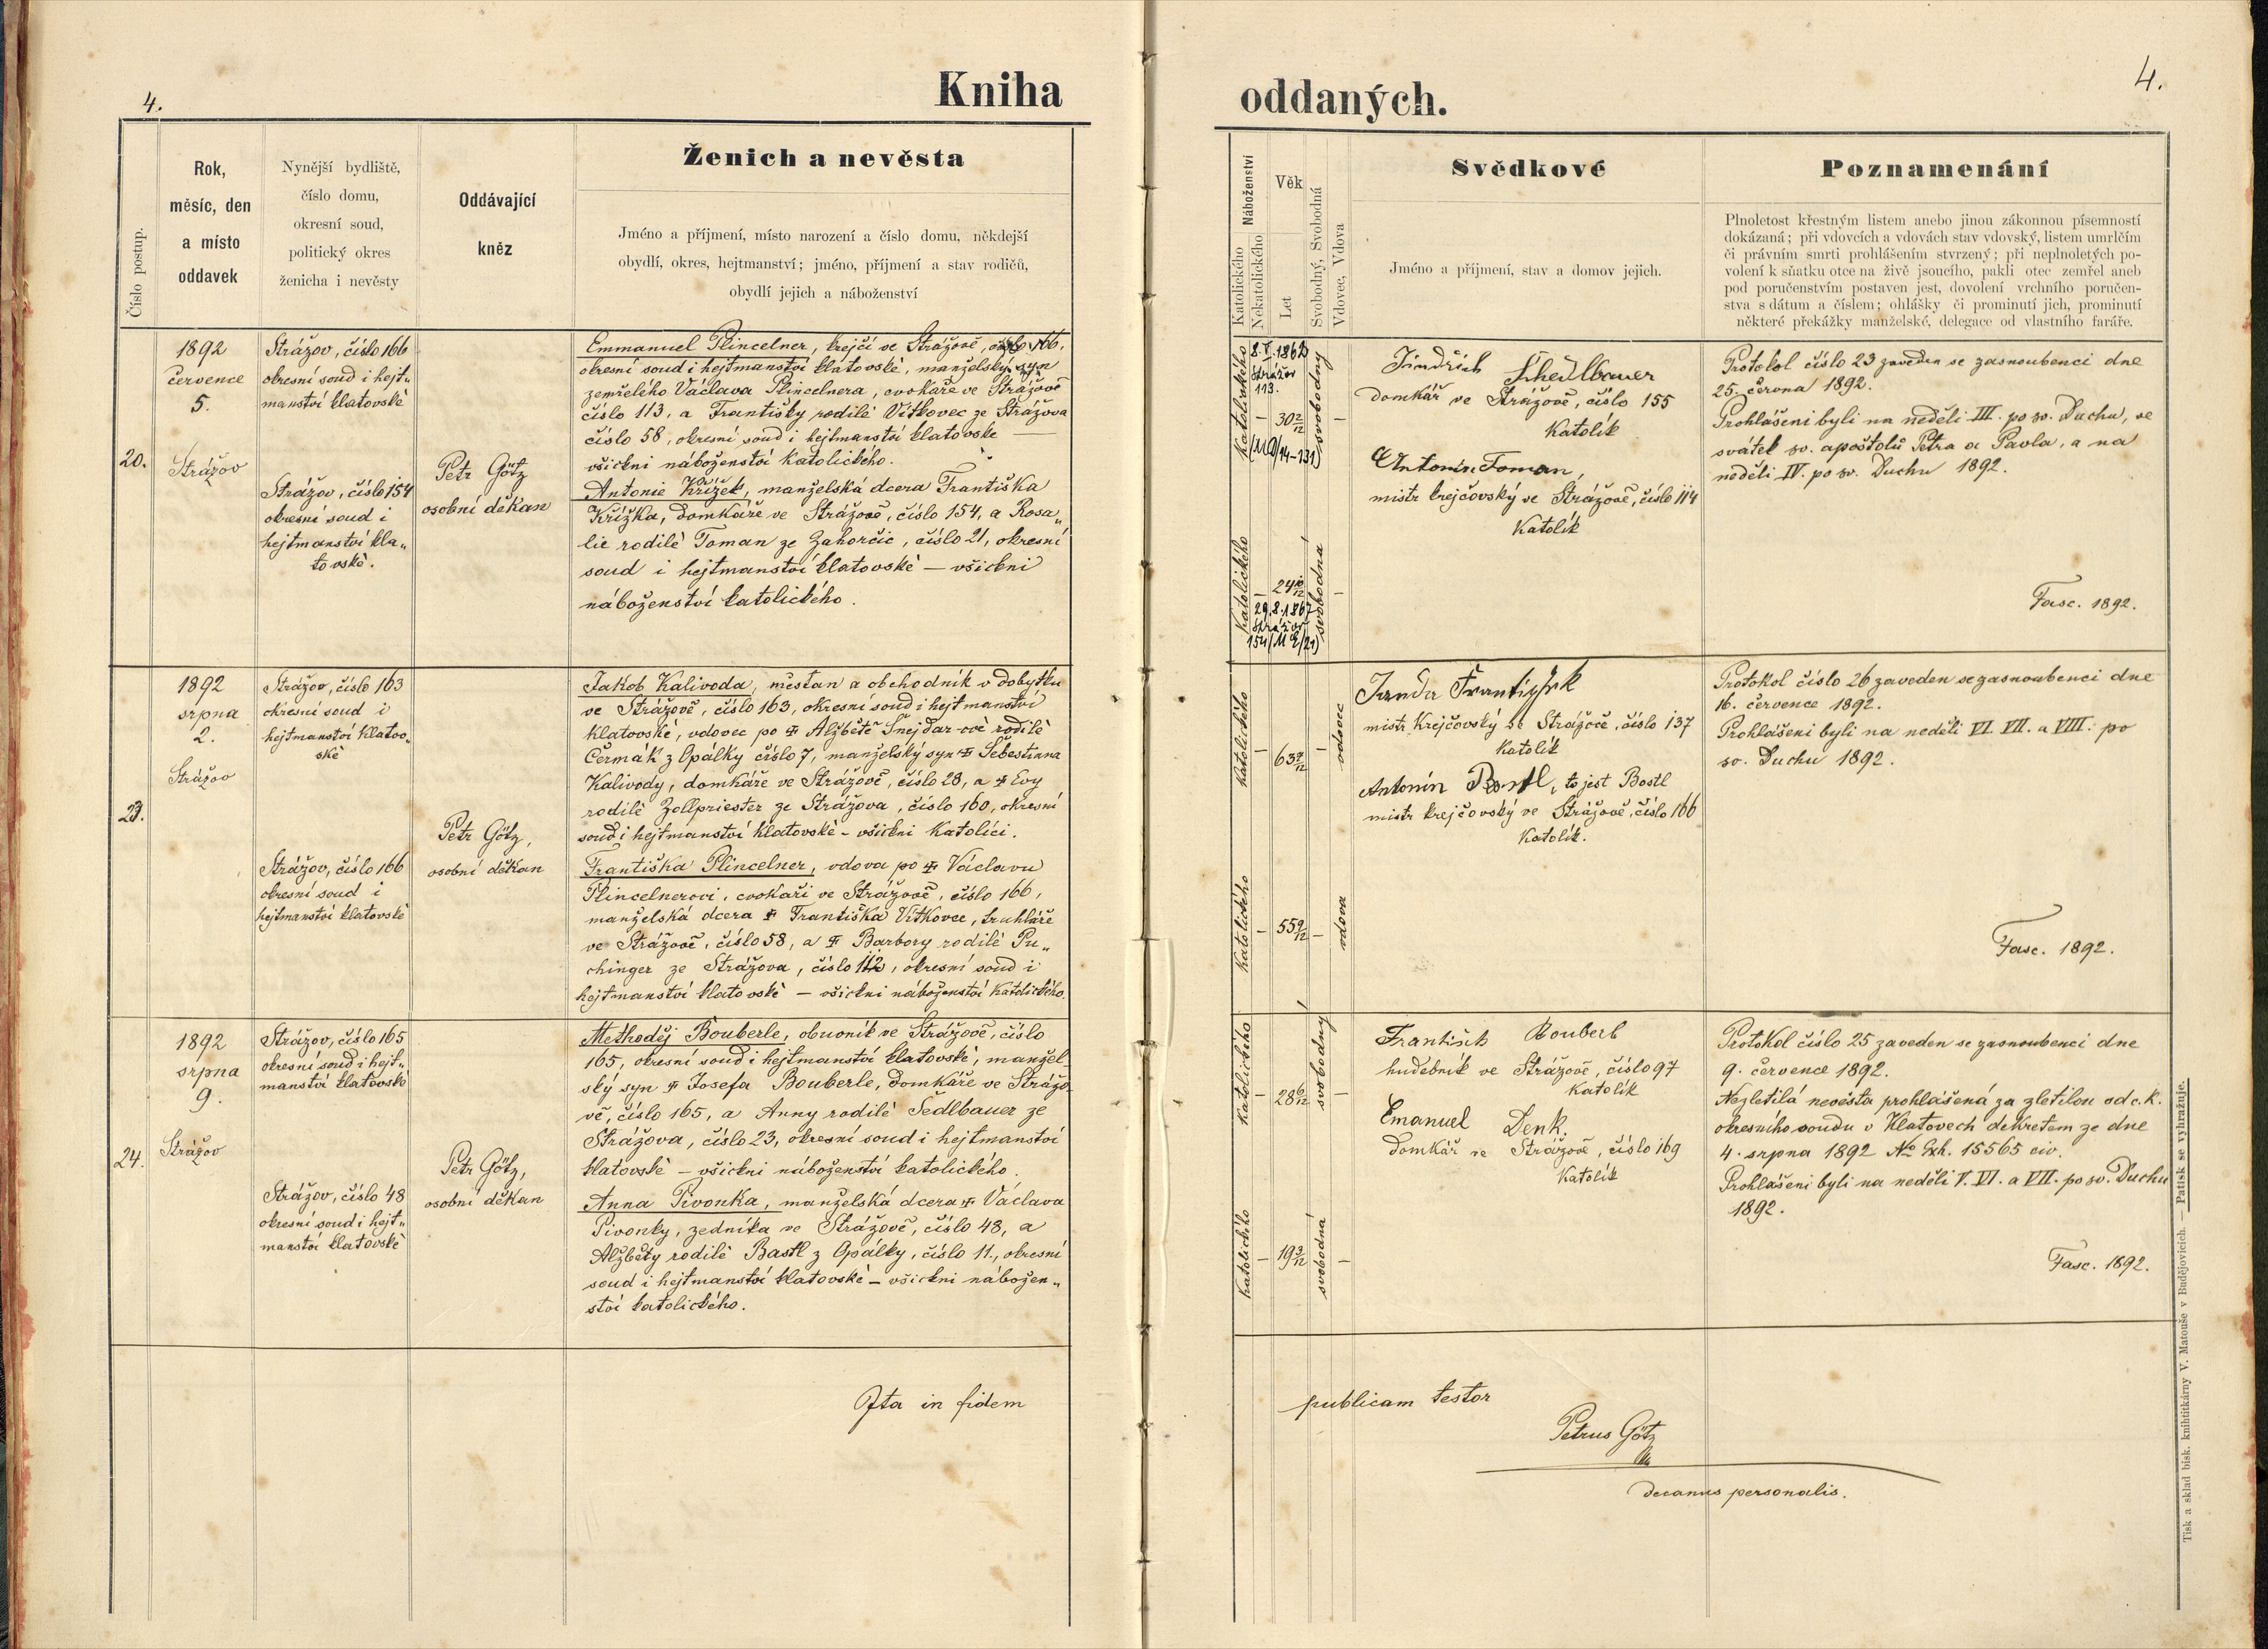 4.
Kniha
Číslo postup.
Rok,
měsíc, den
a místo
oddavek
Nynější bydliště,
číslo domu,
okresní soud,
politický okres
ženicha i nevěsty
Oddávající
kněz
Ženich a nevěsta
Jméno a příjmení, místo narození a číslo domu, někdejší
obydlí, okres, hejtmanství; jméno, příjmení a stav rodičů,
obydlí jejich a náboženství
20.
1892
července
5.
Strážov
Strážov, číslo 166
okresní soud i hejt„
manství klatovské
Strážov, číslo 154
okresní soud i
hejtmanství kla„
tovské.
Petr Götz
osobní děkan
Emmanuel Plincelner, krejčí ve Strážově, číslo 166,
okresní soud i hejtmanství klatovské, manželský syn
zemřelého Václava Plincelnera, cvokaře ve Strážově
číslo 113, a Františky rodilé Vítkovec ze Strážova
číslo 58, okresní soud i hejtmanství klatovské —
všickni náboženství katolického.
Antonie Křížek, manželská dcera Františka
Křížka, domkáře ve Strážově, číslo 154, a Rosa„
lie rodilé Toman ze Zahorčic, číslo 21, okresní
soud i hejtmanství klatovské — všickni
náboženství katolického.
23.
1892
srpna
2.
Strážov
Strážov, číslo 163
okresní soud i
hejtmanství Klatov„
ské
Strážov, číslo 166
okresní soud i
hejtmanství klatovské
Petr Götz,
osobní děkan
Jakob Kalivoda, měšťan a obchodník v dobytku
ve Strážově, číslo 163, okresní soud i hejtmanství
klatovské, vdovec po ✝ Alžbětě Šnejdar-ové rodilé
Čermák z Opálky číslo 7, manželský syn ✝ Šebestiana
Kalivody, domkáře ve Strážově, číslo 28, a ✝ Evy
rodilé Zollpriester ze Strážova, číslo 160, okresní
soud i hejtmanství klatovské – všickni Katolíci.
Františka Plincelner, vdova po ✝ Václavu
Plincelnerovi, cvokaři ve Strážově, číslo 166,
manželská dcera ✝ Františka Vítkovce, truhláře
ve Strážově, číslo 58, a ✝ Barbory rodilé Pu„
chinger ze Strážova, číslo 112, okresní soud i
hejtmanství klatovské — všickni náboženství Katolického.
24.
1892
srpna
9.
Strážov
Strážov, číslo 165
okresní soud i hejt„
manství klatovské
Strážov, číslo 48
okresní soud i hejt„
manství klatovské
Petr Götz,
osobní děkan
Methoděj Bouberle, obuoník ve Strážově, číslo
165, okresní soud i hejtmanství klatovské, manžel-
ský syn ✝ Josefa Bouberle, domkáře ve Strážo-
vě, číslo 165, a Anny rodilé Šedlbauer ze
Strážova, číslo 23, okresní soud i hejtmanství
klatovské — všickni náboženství katolického.
Anna Pivonka, manželská dcera ✝ Václava
Pivonky, zedníka ve Strážově, číslo 48, a
Alžběty rodilé Bastl z Opálky, číslo 11., okresní
soud i hejtmanství klatovské — všickni nábožen„
ství katolického.
Ita in fidem
4.
oddaných.
Náboženství
Katolického
Nekatolického
Věk
Let
Svobodný, Svobodná
Vdovec, Vdova
Svědkové
Jméno a příjmení, stav a domov jejich.
Poznamenání
Plnoletost křestným listem anebo jinou zákonnou písemností
dokázaná; při vdovcích a vdovách stav vdovský, listem umrlčím
či právním smrti prohlášením stvrzený; při neplnoletých po-
volení k sňatku otce na živě jsoucího, pakli otec zemřel aneb
pod poručenstvím postaven jest, dovolení vrchního poručen-
stva s dátum a číslem; ohlášky či prominutí jich, prominutí
některé překážky manželské, delegace od vlastního faráře.
Katolického
8.V.1862
Strážov
113.
— 30 2/12 —
svobodný
(MQ/14-131)
Katolického
— 24 10/12 —
svobodná
29.8.1867
Strážov
154 (M2/21)
Jindřich Schedlbauer
domkář ve Strážově, číslo 155
Katolík
Antonín Toman,
mistr krejčovský ve Strážově, číslo 114
Katolík
Protokol číslo 23 zaveden se zasnoubenci dne
25. června 1892.
Prohlášeni byli na neděli III. po sv. Duchu, ve
svátek sv. apoštolů Petra a Pavla, a na
neděli IV. po sv. Duchu 1892.
Fasc. 1892.
Katolického
— 63 —
vdovec
Katolického
— 55 —
vdova
Janda František
mistr Krejčovský ve Strážově, číslo 137
Katolík
Antonín Bostl, to jest Bostl
mistr krejčovský ve Strážově, číslo 166
Katolík.
Protokol číslo 26 zaveden se zasnoubenci dne
16. července 1892.
Prohlášeni byli na neděli VI. VII. a VIII. po
sv. Duchu 1892.
Fasc. 1892.
Katolického
— 28 6/12 —
svobodný
Katolického
— 19 3/12 —
svobodná
František Bouberl
hudebník ve Strážově, číslo 97
Katolík
Emanuel Denk.
domkář ve Strážově, číslo 169
Katolík
Protokol číslo 25 zaveden se zasnoubenci dne
9. července 1892.
Nezletilá nevěsta prohlášená za zletilou od c. k.
okresního soudu v Klatovech dekretem ze dne
4. srpna 1892 No Exh. 15565 civ.
Prohlášeni byli na neděli V. VI. a VII. po sv. Duchu
1892.
Fasc. 1892.
publicam testor
Petrus Götz
decanus personalis.
Tisk a sklad bisk. knihtiskárny V. Matouše v Budějovicích. — Patisk se vyhražuje.